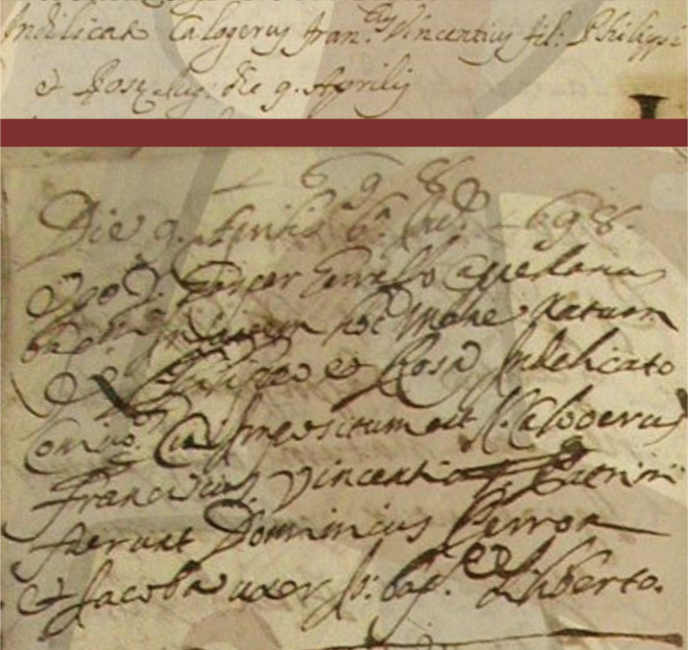 Indilicat Calogerus Fran.cus Vincentius fil: Philippi
et Rosę Iug: die 9. Aprilis
Die 9. Aprilis 6.ę Ind. 1698.
Ego D. Cappellanus
bap. Infantem hoc Mane Natum
Ex Philippo et Rosa Indelicato
Coniug. Cui Impositum est N. Calogerus
Franciscus Vincentius Patrini
fuerunt Dominicus Ferron
et Jacoba uxor Liberto.